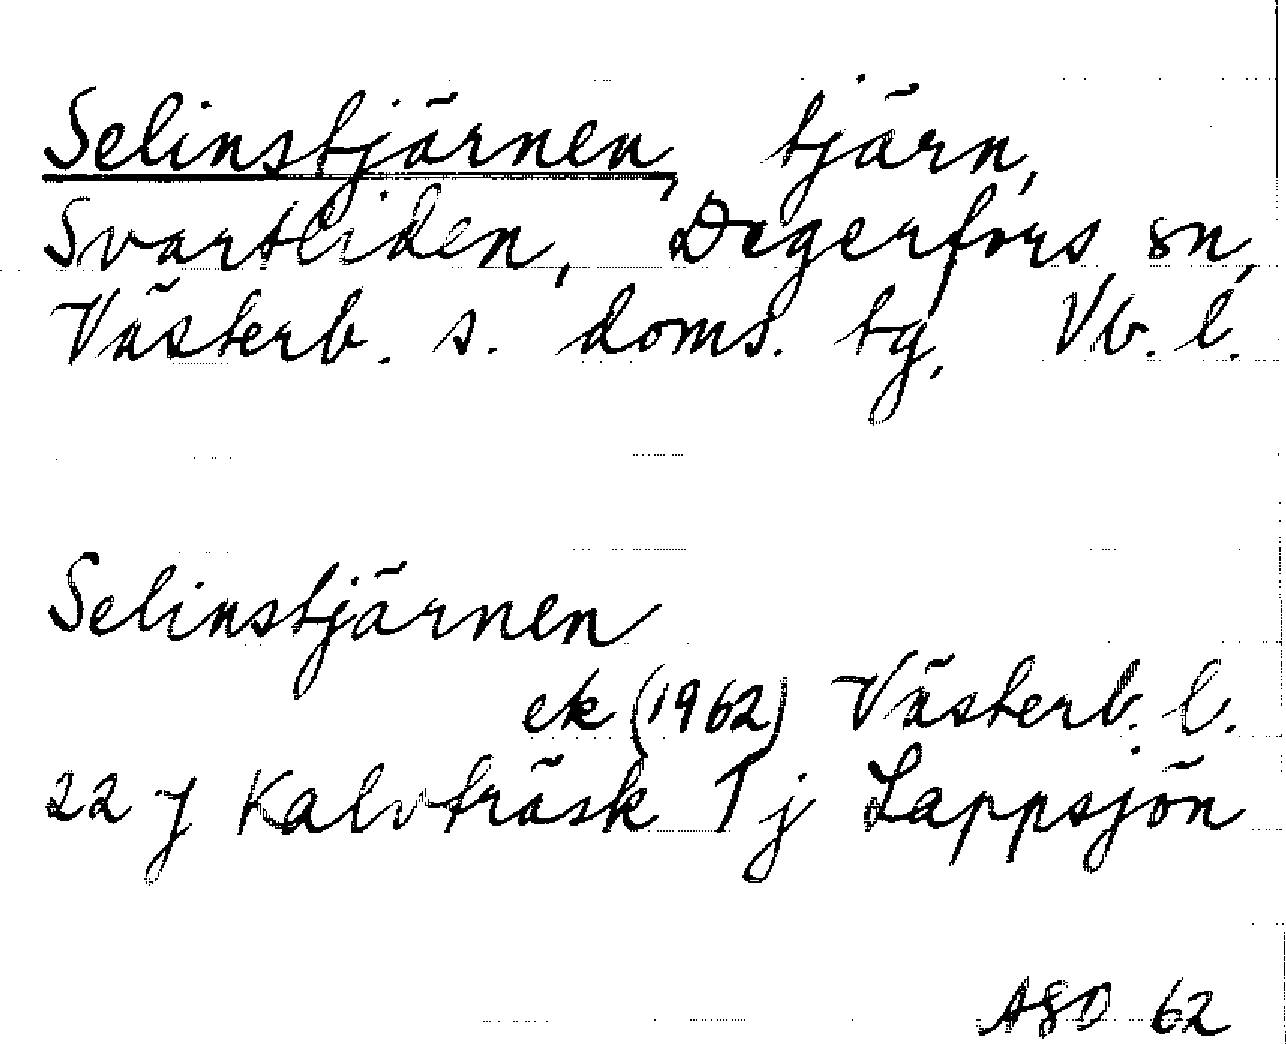 Selinstjärnen, tjärn,
Svartliden, Degerfors sn,
Västerb. s. doms. tg, Vb. l.
Selinstjärnen
ek (1962) Västerb. l.
22 J Kalvträsk 1 j Lappsjön
ASD 62